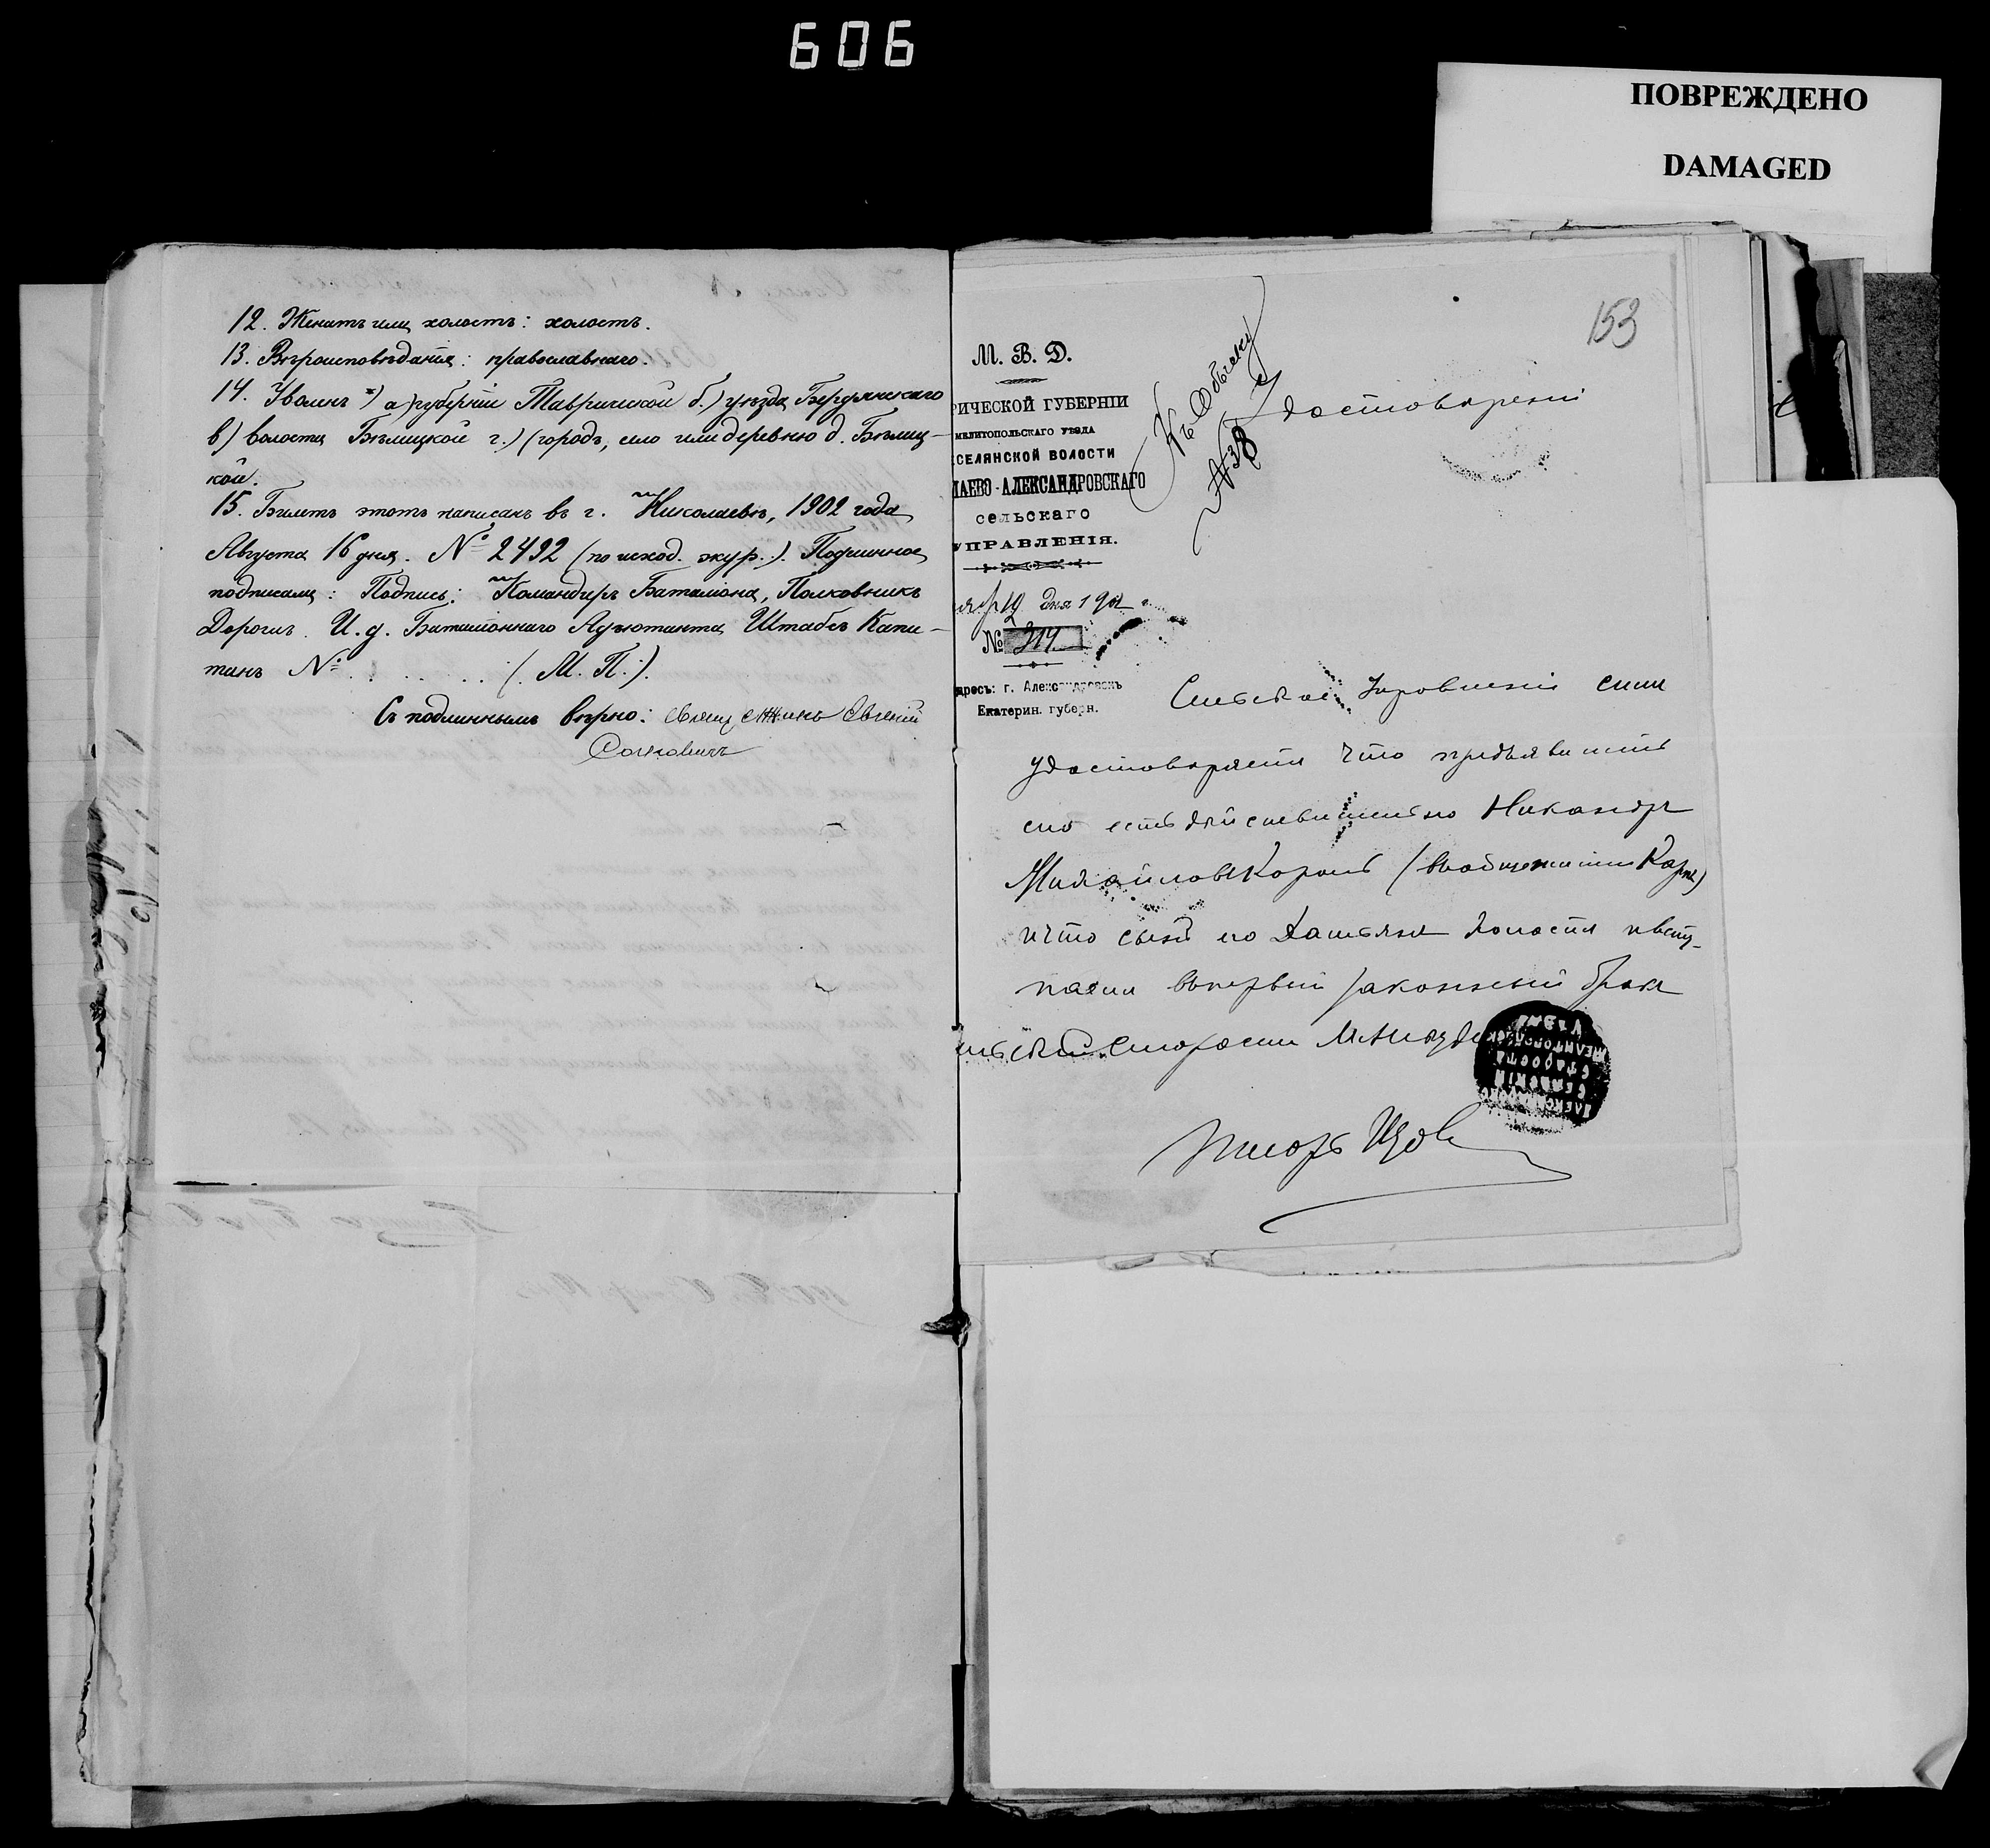 606
ПОВРЕЖДЕНО
DAMAGED
12. Женатъ или холостъ: холостъ.
13. Вѣроисповѣданія: православнаго.
14. Уволенъ *) а) губерніи Таврической б.) уѣзда Бердянскаго
в) волости Бѣлицкой г.) (городъ, село или деревню д. Бѣлиц-
кой.
15. Билетъ этотъ написанъ въ г. Николаевѣ, 1902 года
Августа 16 дня. № 2492 (по исход. жур.). Подлинное
подписали: Подпись: Командиръ Баталіона, Полковникъ
Дорогинъ. И. д. Баталіоннаго Адъютанта Штабсъ Капи-
танъ № . . . . . (М. П.).
Съ подлиннымъ вѣрно: священникъ Евгеній
153
М. В. Д.
РИЧЕСКОЙ ГУБЕРНІИ
МЕЛИТОПОЛЬСКАГО УѢЗДА
СЕЛЯНСКОЙ ВОЛОСТИ
ЛАЕВО-АЛЕКСАНДРОВСКАГО
СЕЛЬСКАГО
УПРАВЛЕНІЯ.
19 дня 1902 г.
№ 314
дресъ: г. Александровскъ
Екатерин. губерн.
Къ Обыску
№ 38
Удостовѣреніе
Сельское Управленіе симъ
удостовѣряетъ что предъявитель
сего есть дѣйствительно Никаноръ
Михайловъ Король
и что сынъ его холостъ и всту-
паетъ въ первый законный бракъ
Сельскій Староста
Писарь